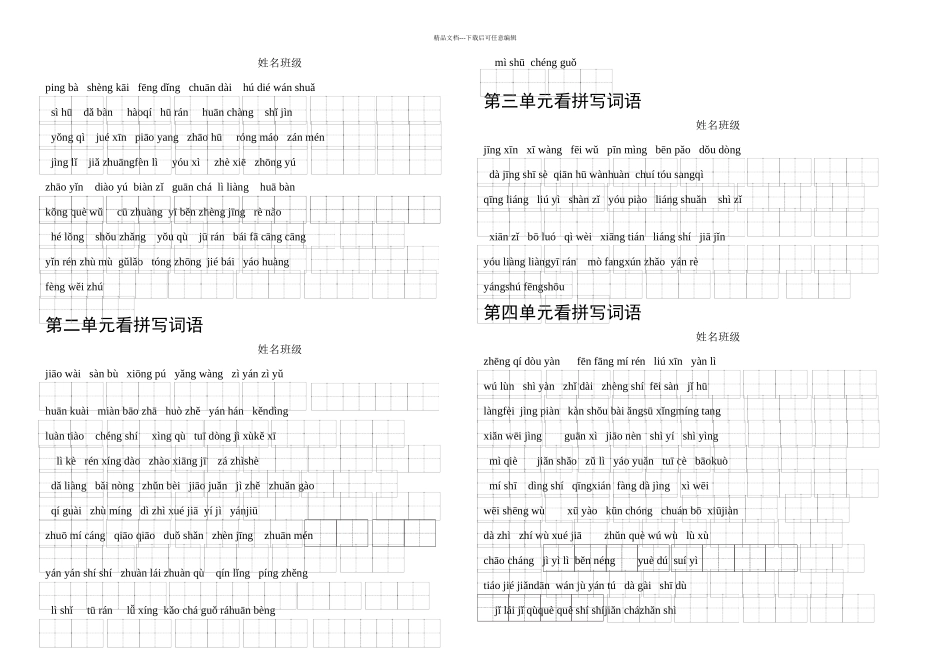 精品文档---下载后可任意编辑
姓名班级
ping bà shèng kāi fēng dǐng chuān dài hú dié wán shuǎ
sì hū dǎ bàn hàoqí hū rán huān chàng shǐ jìn
yǒng qì jué xīn piāo yang zhāo hū róng máo zán mén
jìng lǐ jiǎ zhuāngfèn lì yóu xì zhè xiē zhōng yú
zhāo yǐn diào yú biàn zǐ guān chá lì liàng huā bàn
kǒng què wǔ cū zhuàng yī běn zhèng jīng rè nào
hé lǒng shǒu zhǎng yǒu qù jū rán bái fā cāng cāng
yǐn rén zhù mù gǔlǎo tóng zhōng jié bái yáo huàng
fèng wěi zhú
第二单元看拼写词语
姓名班级
jiāo wài sàn bù xiōng pú yǎng wàng zì yán zì yǔ
huān kuài miàn bāo zhā huò zhě yán hán kěndìng
luàn tiào chéng shí xìng qù tuī dòng jì xùkě xī
lì kè rén xíng dào zhào xiāng jī zá zhìshè
dǎ liàng bǎi nòng zhǔn bèi jiāo juǎn jì zhě zhuǎn gào
qí guài zhù míng dì zhì xué jiā yí jì yánjiū
zhuō mí cáng qiāo qiāo duǒ shǎn zhèn jīng zhuān mén
yán yán shí shí zhuàn lái zhuàn qù qín lǐng píng zhěng
lì shǐ tū rán lǚ xíng kǎo chá guǒ ráhuān bèng
mì shū chéng guǒ
第三单元看拼写词语
姓名班级
jīng xīn xī wàng fēi wǔ pīn mìng bēn pǎo dǒu dòng
dà jīng shī sè qiān hū wànhuàn chuí tóu sangqì
qīng liáng liú yì shàn zǐ yóu piào liáng shuǎn shì zǐ
xiān zǐ bō luó qì wèi xiāng tián liáng shí jiā jǐn
yóu liàng liàngyī rán mò fangxún zhǎo yán rè
yángshú fēngshōu
第四单元看拼写词语
姓名班级
zhēng qí dòu yàn fēn fāng mí rén liú xīn yàn lì
wú lùn shì yàn zhǐ dài zhèng shí fēi sàn jǐ hū
làngfèi jìng piàn kàn shǒu bài ǎngsū xǐngmíng tang
xiǎn wēi jìng guān xì jiāo nèn shì yí shì yìng
mì qiè jiǎn shǎo zǔ lì yáo yuǎn tuī cè bāokuò
mí shī dìng shí qīngxián fàng dà jìng xì wēi
wēi shēng wù xū yào kūn chóng chuán bō xiūjiàn
dà zhì zhí wù xué jiā zhǔn què wú wù lù xù
chāo cháng jì yì lì běn néng yuè dú suí yì
tiáo jié jiǎndān wán jù yán tú dà gài shī dù
jǐ lái jǐ qùquè què shí shíjiǎn cházhǎn shì